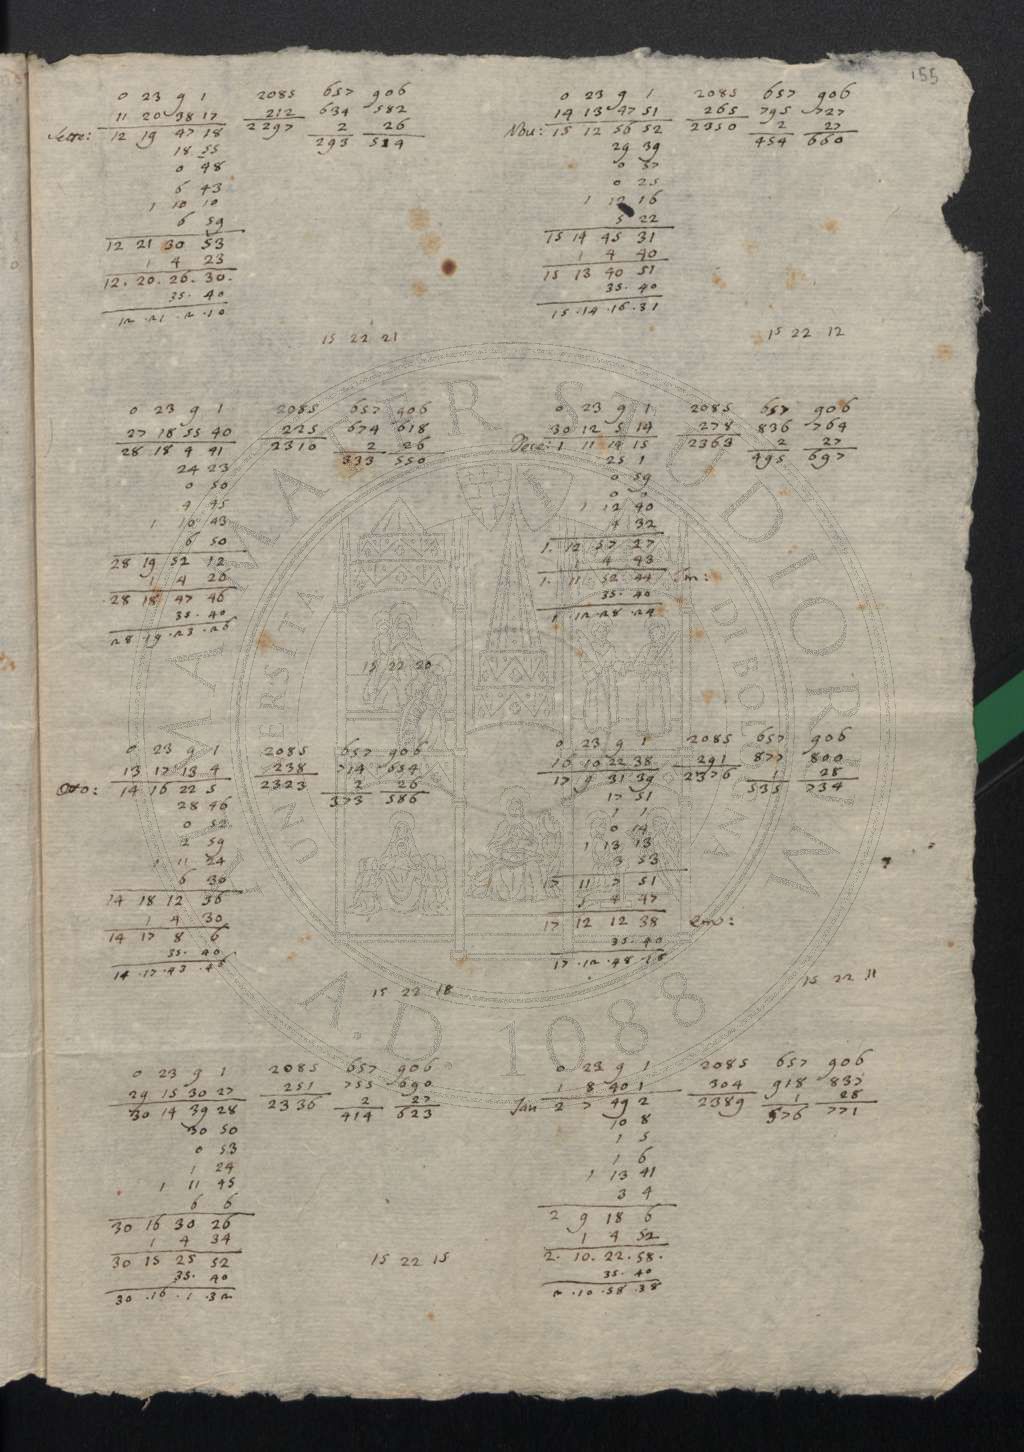 155
0 23 9 1 2085 657 906
11 20 38 17 212 634 582
Sette: 12 19 47 18 2297 2 26
293 514
18 55
0 48
6 43
1 10 10
6 59
12 21 30 53
1 4 23
12. 20. 26. 30.
35. 40
12 .21 .2 .10
15 22 21
0 23 9 1 2085 657 906
27 18 55 40 225 674 618
28 18 4 41 2310 2 26
333 550
24 23
0 50
4 45
1 10 43
6 50
28 19 52 12
1 4 26
28 18 47 46
35. 40
28 .19 .23 .26
15 22 20
0 23 9 1 2085 657 906
13 17 13 4 238 714 654
Otto: 14 16 22 5 2323 2 26
373 586
28 46
0 52
2 59
1 11 24
6 30
14 18 12 36
1 4 30
14 17 8 6
35. 40
14 .17 .43 .46
15 22 18
0 23 9 1 2085 657 906
29 15 30 27 251 755 690
30 14 39 28 2336 2 27
414 623
30 50
0 53
1 24
1 11 45
6 6
30 16 30 26
1 4 34
30 15 25 52
35. 40
30 .16 .1 .32
15 22 15
0 23 9 1 2085 657 906
14 13 47 51 265 795 727
Nou: 15 12 56 52 2350 2 27
454 660
29 39
0 57
0 25
1 12 16
5 22
15 14 45 31
1 4 40
15 13 40 51
35. 40
15 .14 .16 .31
15 22 12
0 23 9 1 2085 657 906
30 12 5 14 278 836 764
Dece: 1 11 14 15 2363 2 27
495 697
25 1
0 59
0 0
1 12 40
4 32
1. 12 57 27
1 4 43
1. 11 52 44
35. 40
1 12 .28 .24
0 23 9 1 2085 657 906
16 10 22 38 291 877 800
17 9 31 39 2376 1 28
535 734
17 51
1 1
0 14
1 13 13
3 53
17 11 7 51
1 4 47
17 12 12 38
35. 40
17 .12 .48 .18
15 22 11
0 23 9 1 2085 657 906
1 8 40 1 304 918 837
Jan 2 7 49 2 2389 1 28
576 771
10 8
1 5
1 6
1 13 41
3 4
2 9 18 6
1 4 52
2. 10. 22. 58.
35. 40
2 .10 .58 .38
ALMA MATER STUDIORUM
A.D. 1088
UNIVERSITÀ DI BOLOGNA